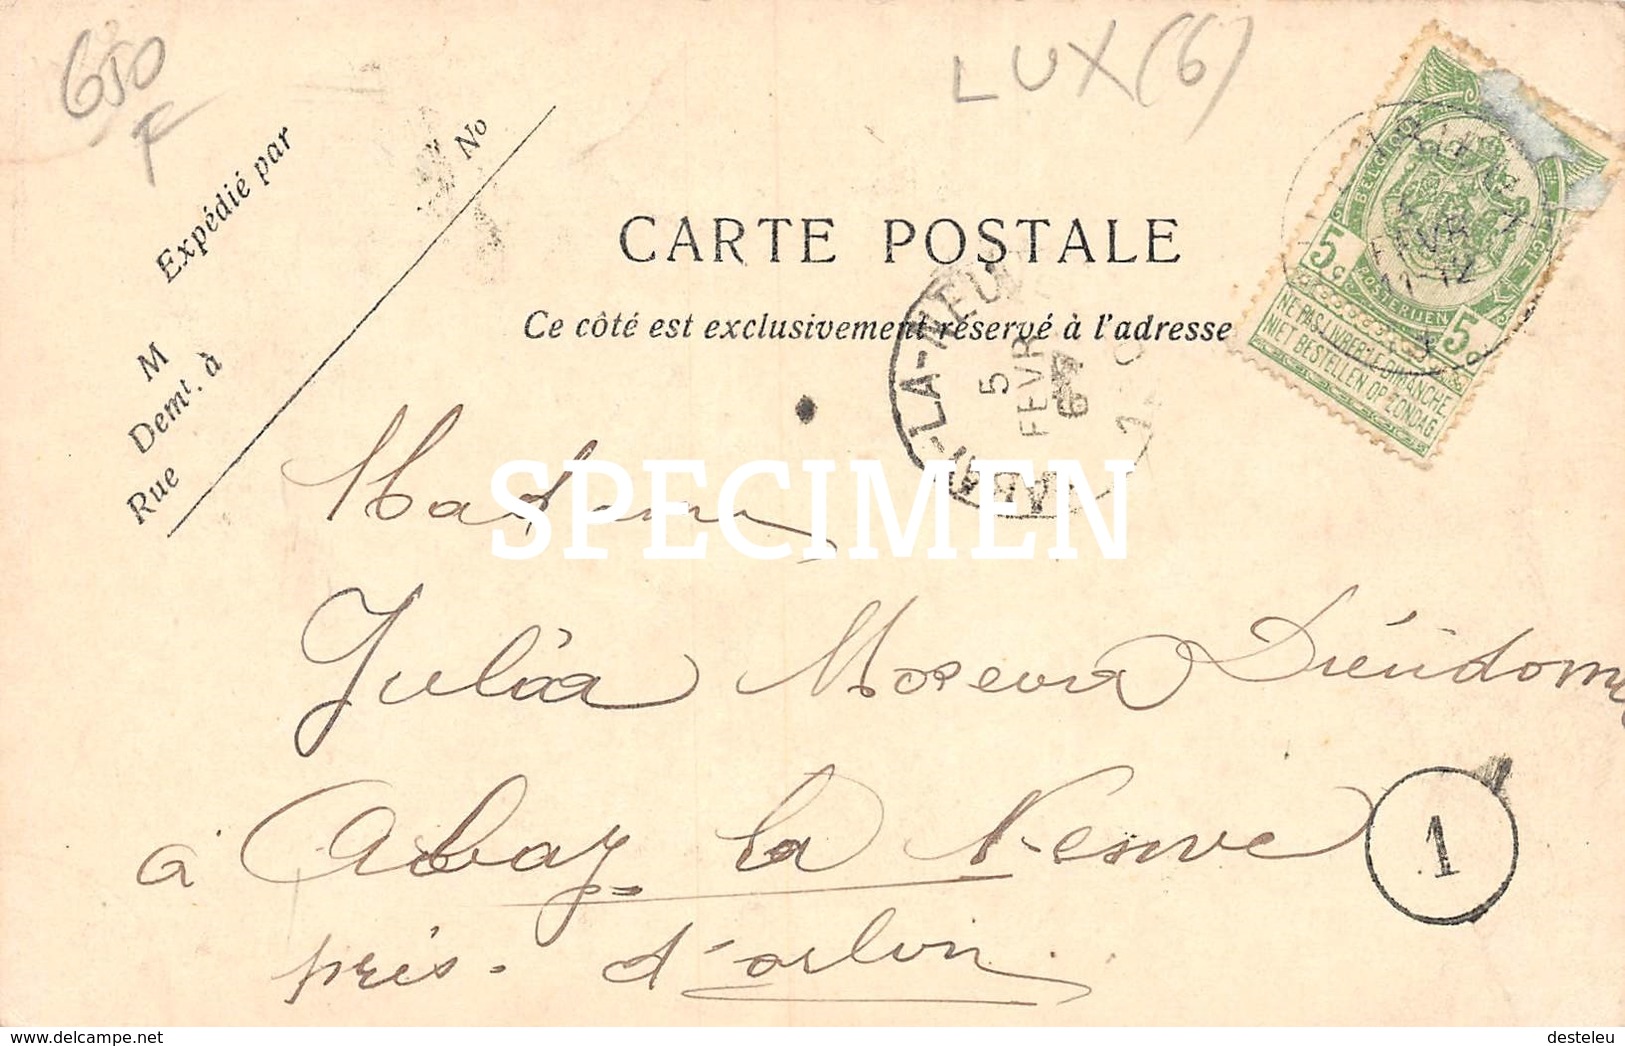 650
F
LUX (6)
Expédié par
No
M
Demt. à
Rue
CARTE POSTALE
Ce côté est exclusivement réservé à l'adresse
BELGIQUE
POSTERIJEN
5c 5c
NE PAS LIVRER LE DIMANCHE
NIET BESTELLEN OP ZONDAG
FEVR
11-12
LA-NEUV
5
FEVR
SPECIMEN
Madame
Julia
à Abay la Neuve
1
près d'arlon
www.delcampe.net
desteleu